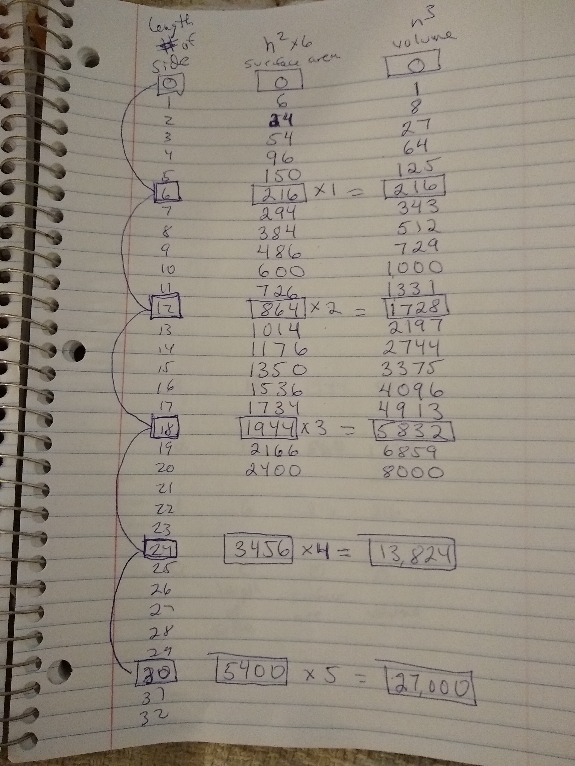 length n³
# of n² x 6 volume
side surface area
0 0 0
1 6 1
2 24 8
3 54 27
4 96 64
5 150 125
6 216 x 1 = 216
7 294 343
8 384 512
9 486 729
10 600 1,000
11 726 1331
12 864 x 2 = 1728
13 1014 2197
14 1176 2744
15 1350 3375
16 1536 4096
17 1734 4913
18 1944 x 3 = 5832
19 2166 6859
20 2400 8000
21
22
23
24 3456 x 4 = 13,824
25
26
27
28
29
30 5400 x 5 = 27,000
31
32